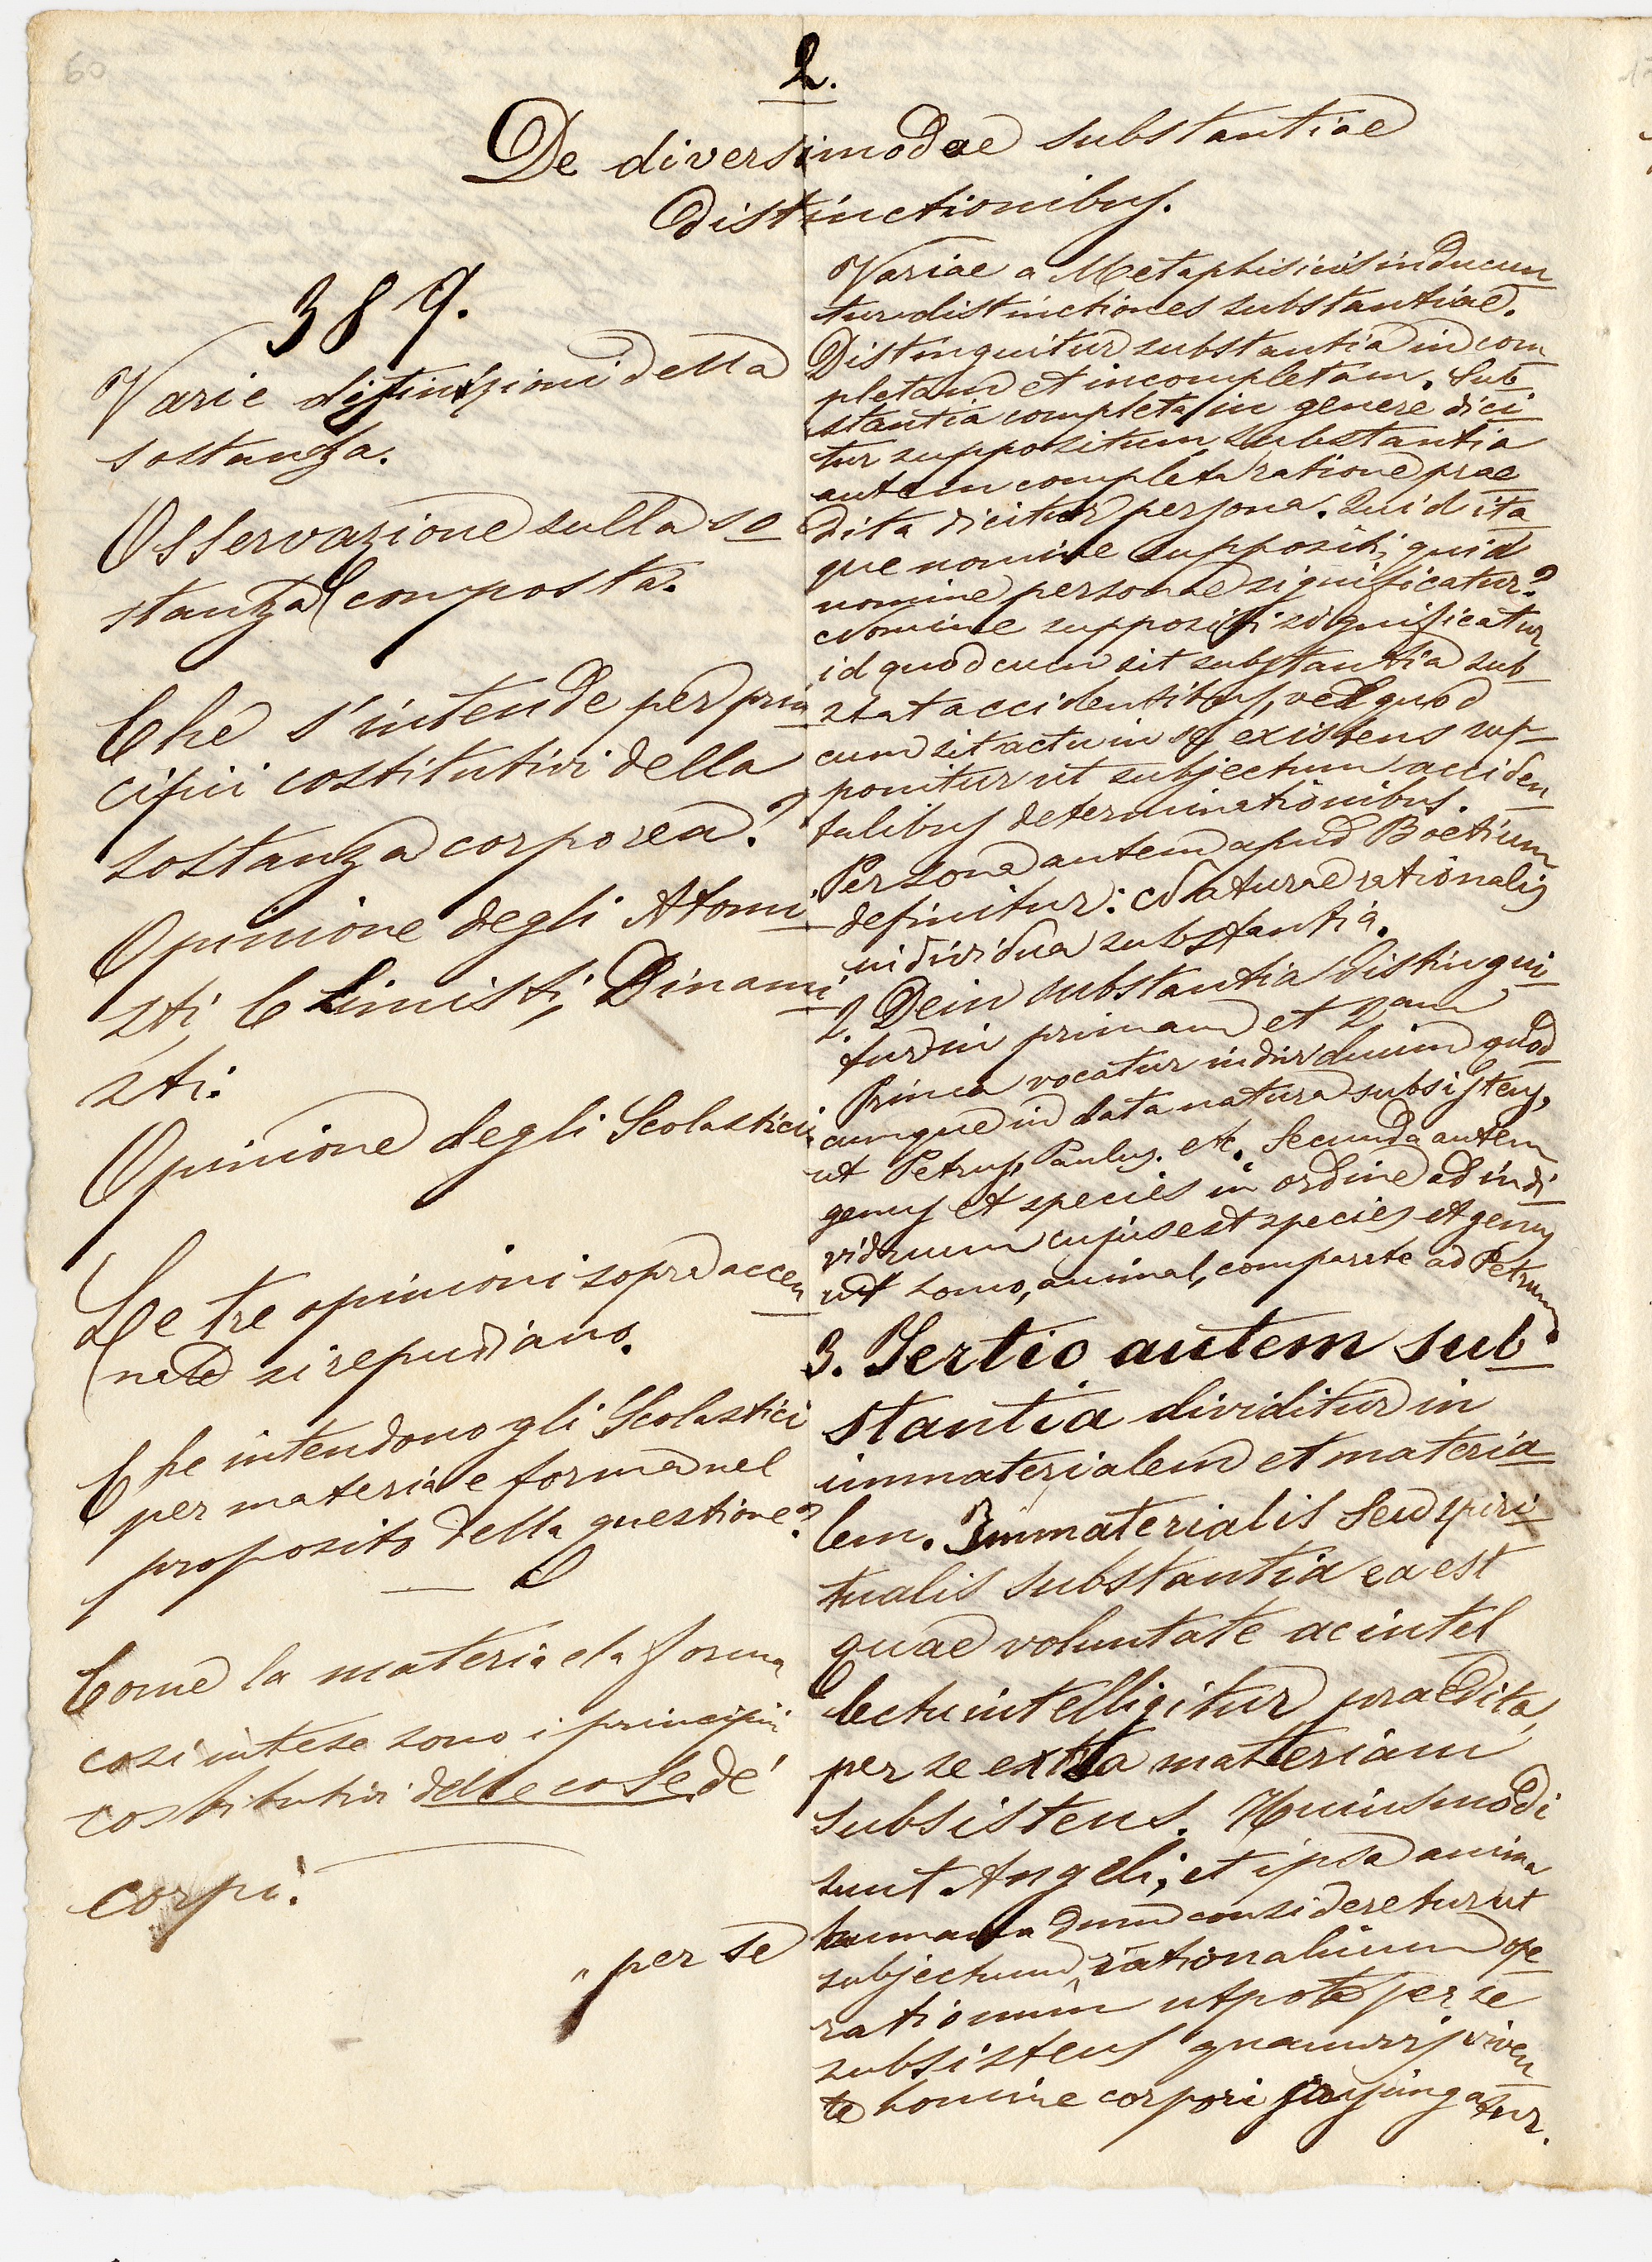 60
2.
De diversimodae substantiae
distinctionibus.
389.
Varie distinzioni della
sostanza.
Osservazione sulla so
stanza composta.
Che s'intende per prin
cipii costitutivi della
sostanza corporea?
Opinione degli Atomi
sti, Chimisti, Dinami
sti.
Opinione degli Scolastici
Le tre opinioni sopra accen
nate si repudiano.
Che intendono gli Scolastici
per materia e forma nel
proposito della questione?
Come la materia e la forma
così intese sono i principii
costitutivi delle cose de'
corpi.
" per se
Variae a Metaphisicis inducun
tur distinctiones substantiae.
Distinguitur substantia in com
pletam et incompletam. Sub
stantia completa in genere dici
tur suppositum, substantia
autem completa ratione prae
dita dicitur persona. Quid ita
que nomine suppositi, quid
nomine personae significatur?
Nomine suppositi significatur
id quod cum sit substantia sub
stat accidentibus, vel quod
cum sit actu in se existens sup
ponitur ut subjectum acciden
talibus determinationibus.
Persona autem apud Boetium
definitur: Naturae rationalis
individua substantia.
2. Dein substantia distingui
tur in primam et 2am
Prima vocatur individuum quod
cumque in data natura subsistens,
ut Petrus, Paulus. etc. Secunda autem
genus et species in ordine ad indi
viduum cujus est species et genus
ut homo, animal, comparate ad Petrum.
3. Tertio autem sub
stantia dividitur in
immaterialem et materia
lem. Immaterialis seu spiri
tualis substantia ea est
quae voluntate ac intel
lectu intelligitur praedita,
per se extra materiam
subsistens. Huiusmodi
sunt Angeli, et ipsa anima
humana dum consideretur ut
subjectum rationalium ope
rationum utpote per se
subsistens quamvis viven
te homine corpori conjungatur.